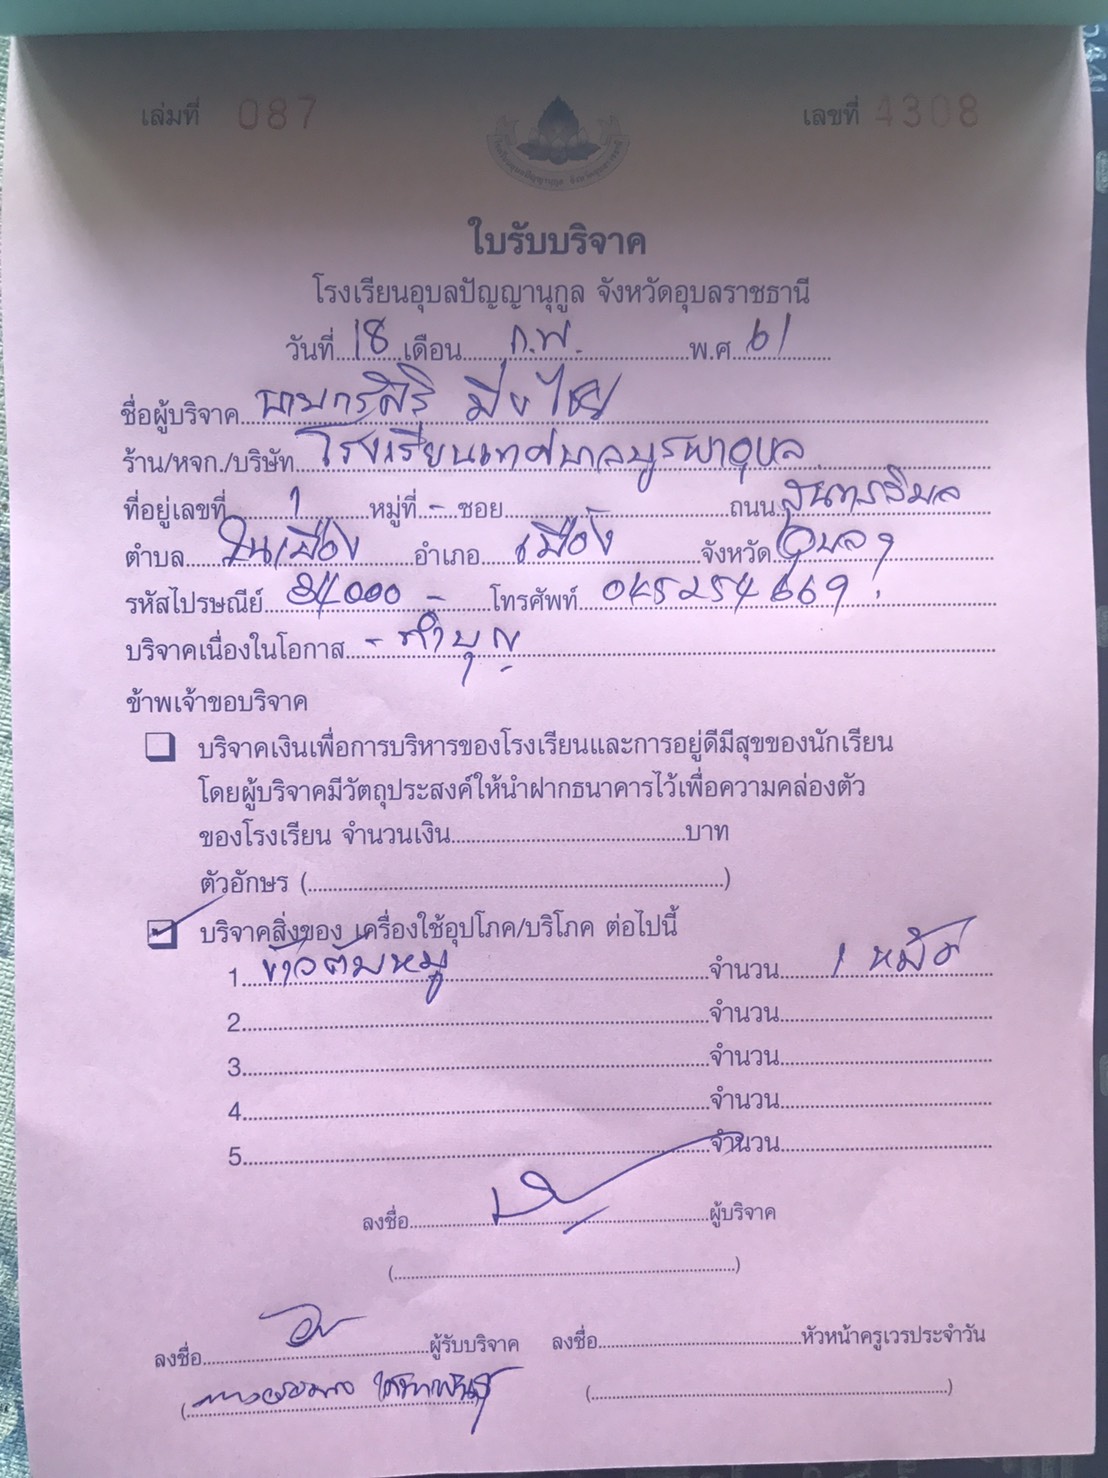 เล่มที่ 087
เลขที่ 4308
ใบรับบริจาค
โรงเรียนอุบลปัญญานุกูล จังหวัดอุบลราชธานี
วันที่ 18 เดือน ก.พ. พ.ศ. 61
ชื่อผู้บริจาค มีชไชย
ร้าน/หจก./บริษัท โรงเรียนเทศบาลบูรพาอุบล
ที่อยู่เลขที่ 1 หมู่ที่ - ซอย ถนน สุนทรวิมล
ตำบล ในเมือง อำเภอ เมือง จังหวัด อุบลฯ
รหัสไปรษณีย์ 34000 - โทรศัพท์ 045254669
บริจาคเนื่องในโอกาส - ทำบุญ
ข้าพเจ้าขอบริจาค
บริจาคเงินเพื่อการบริหารของโรงเรียนและการอยู่ดีมีสุขของนักเรียน
โดยผู้บริจาคมีวัตถุประสงค์ให้นำฝากธนาคารไว้เพื่อความคล่องตัว
ของโรงเรียน จำนวนเงิน บาท
ตัวอักษร ( )
บริจาคสิ่งของ เครื่องใช้อุปโภค/บริโภค ต่อไปนี้
1. ข้าวต้มหมู จำนวน 1 หม้อ
2. จำนวน
3. จำนวน
4. จำนวน
5. จำนวน
ลงชื่อ ผู้บริจาค
( )
ลงชื่อ ผู้รับบริจาค ลงชื่อ หัวหน้าครูเวรประจำวัน
( ) ( )